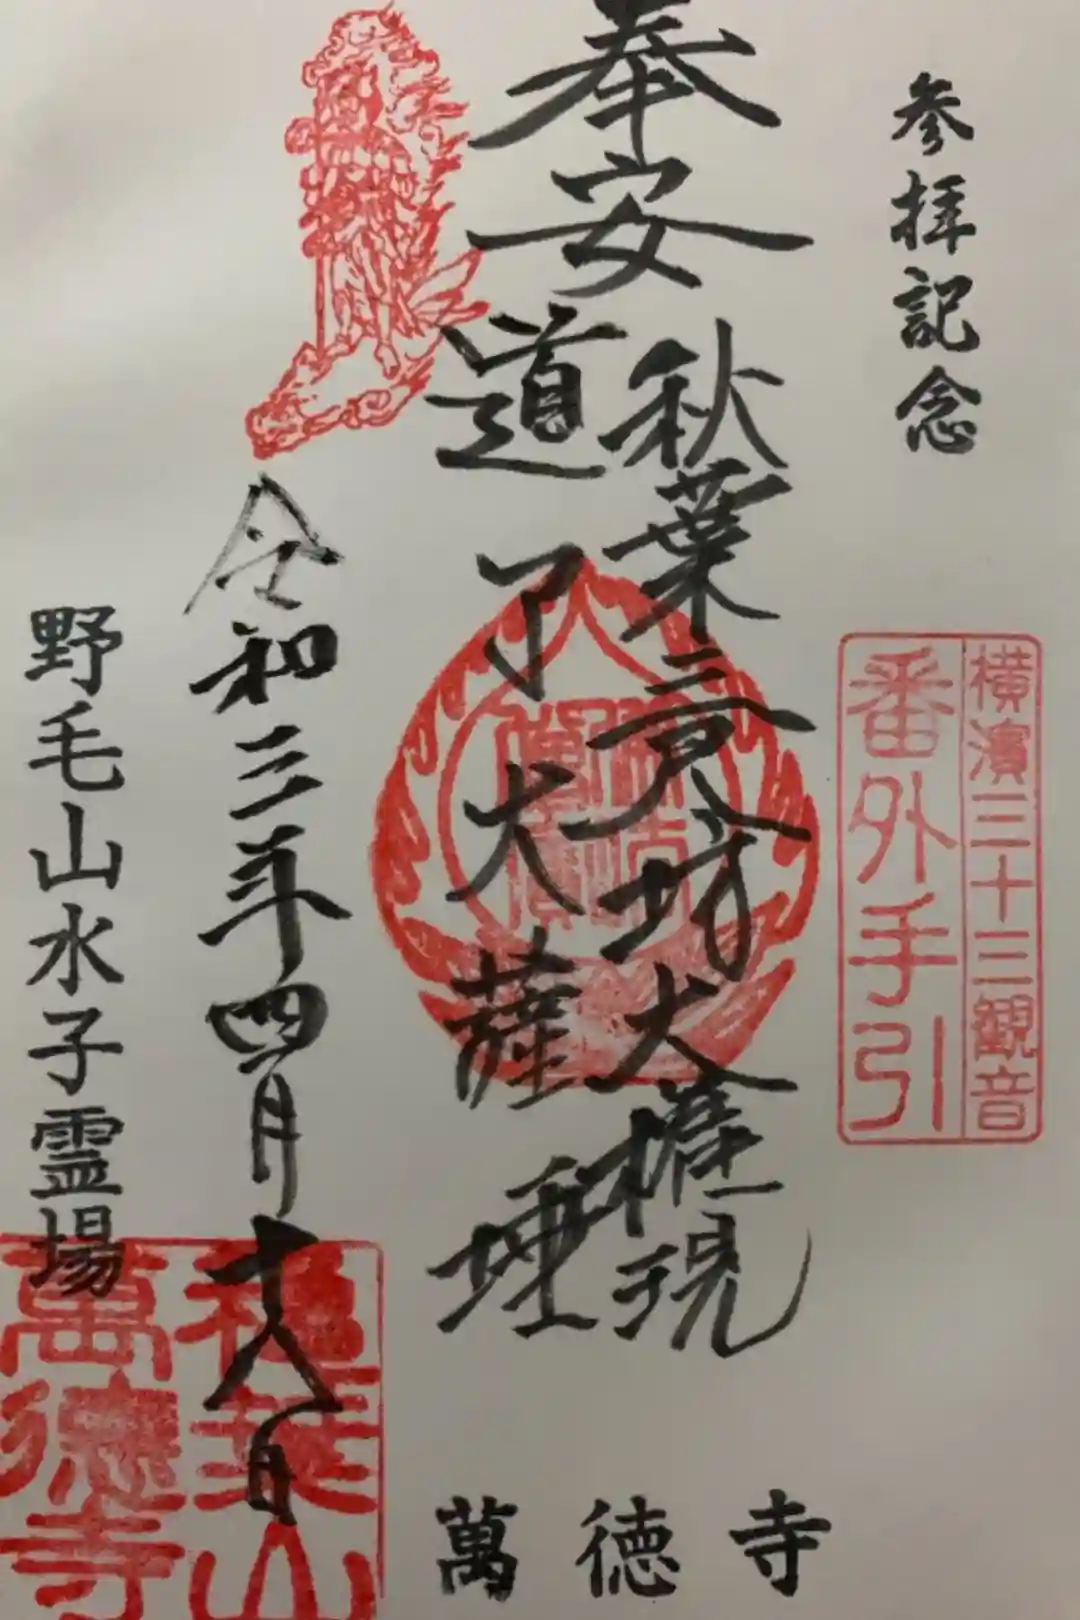 参拝記念
横濱三十三観音
番外手引
奉安
秋葉三尺坊大権現
道了大薩埵
令和三年四月十八日
野毛山水子霊場
萬徳寺
萬徳寺